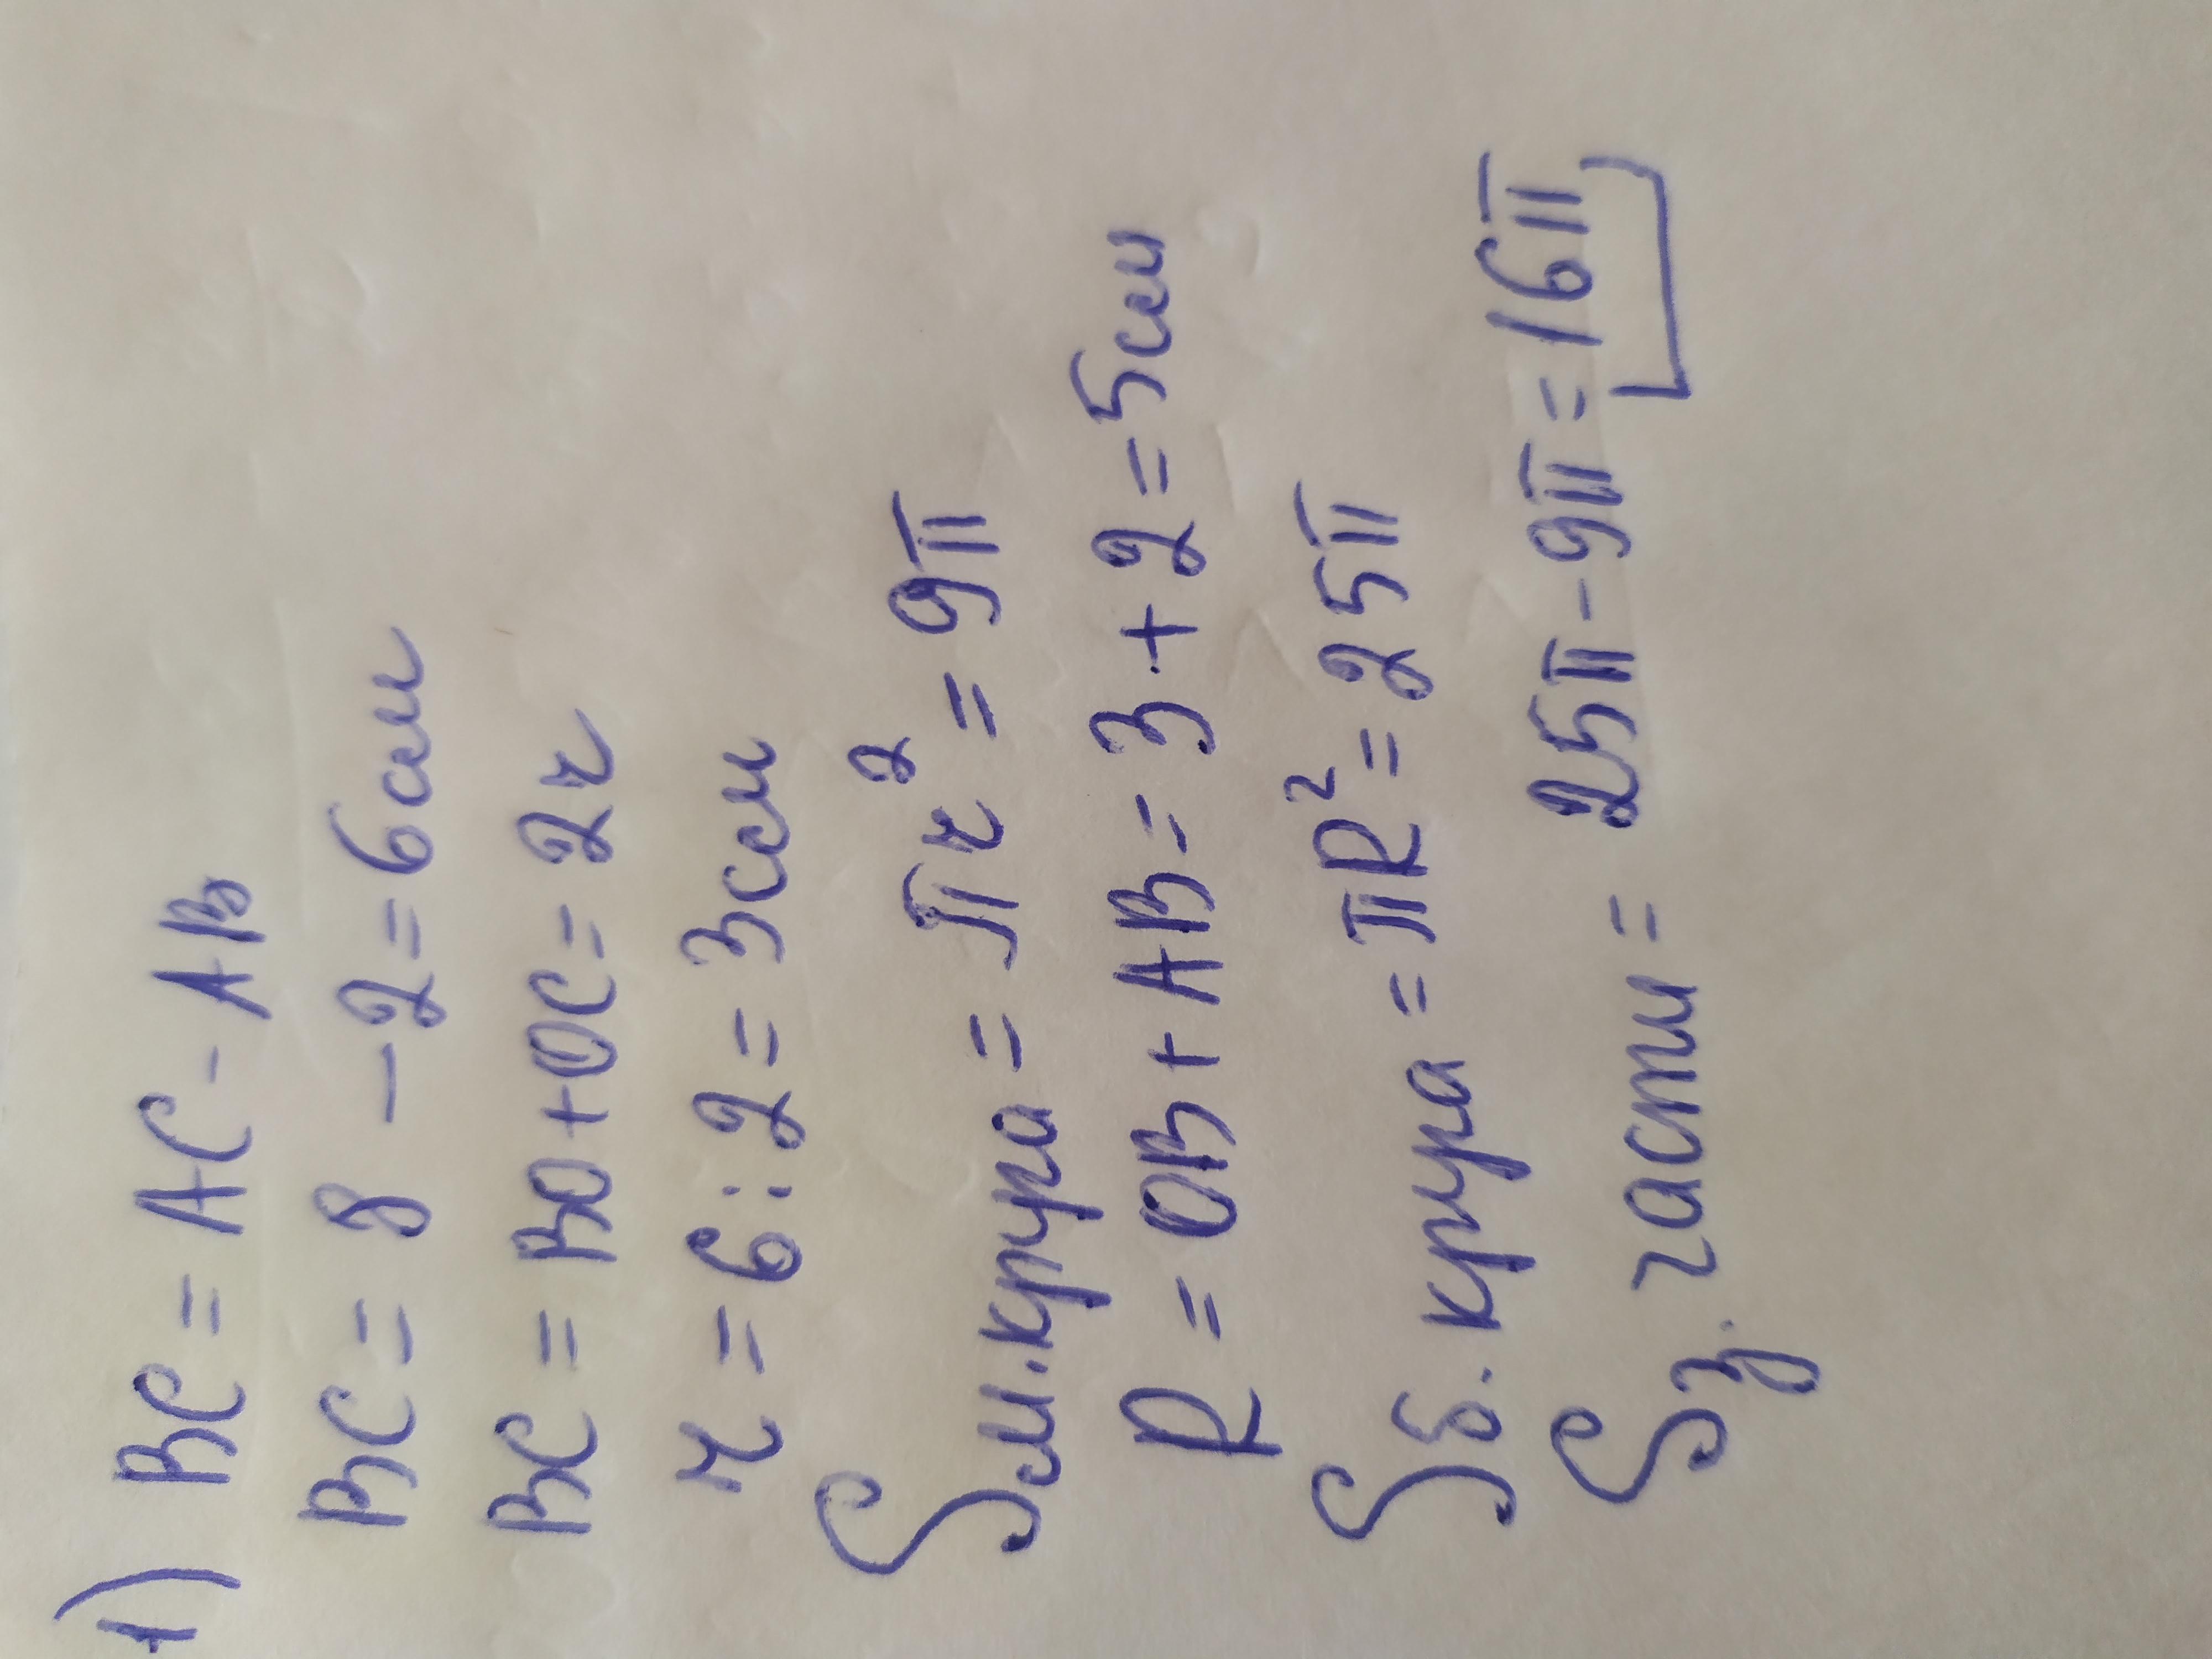 1) BC = AC - AB
BC = 8 - 2 = 6 см
BC = BO + OC = 2r
r = 6 : 2 = 3 см
Sм. круга = πr² = 9π
R = OB + AB = 3 + 2 = 5 см
Sб. круга = πR² = 25π
Sз. части = 25π - 9π = 16π